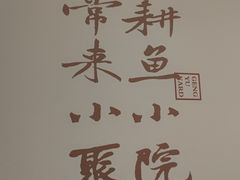 耕鱼小院
常来小聚
GENG
YU
YARD